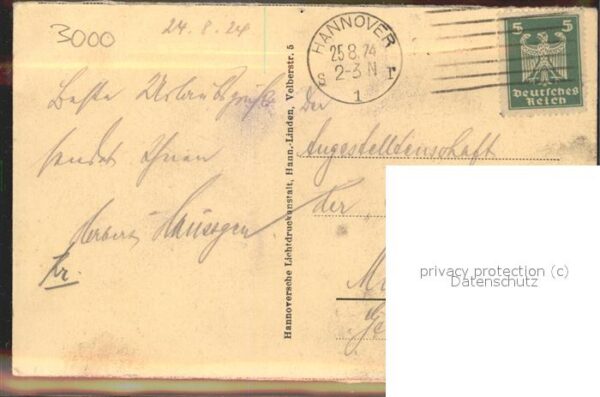 3000
24.8.24
HANNOVER
25 8.24
2-3 N
S r
1
5 5
Deutsches
Reich
Beste Urlaubsgrüße
sendet Ihnen
Herbert
Hannoversche Lichtdruckanstalt, Hann.-Linden, Velberstr. 5
Der
Angestelltenschaft
der
privacy protection (c)
Datenschutz